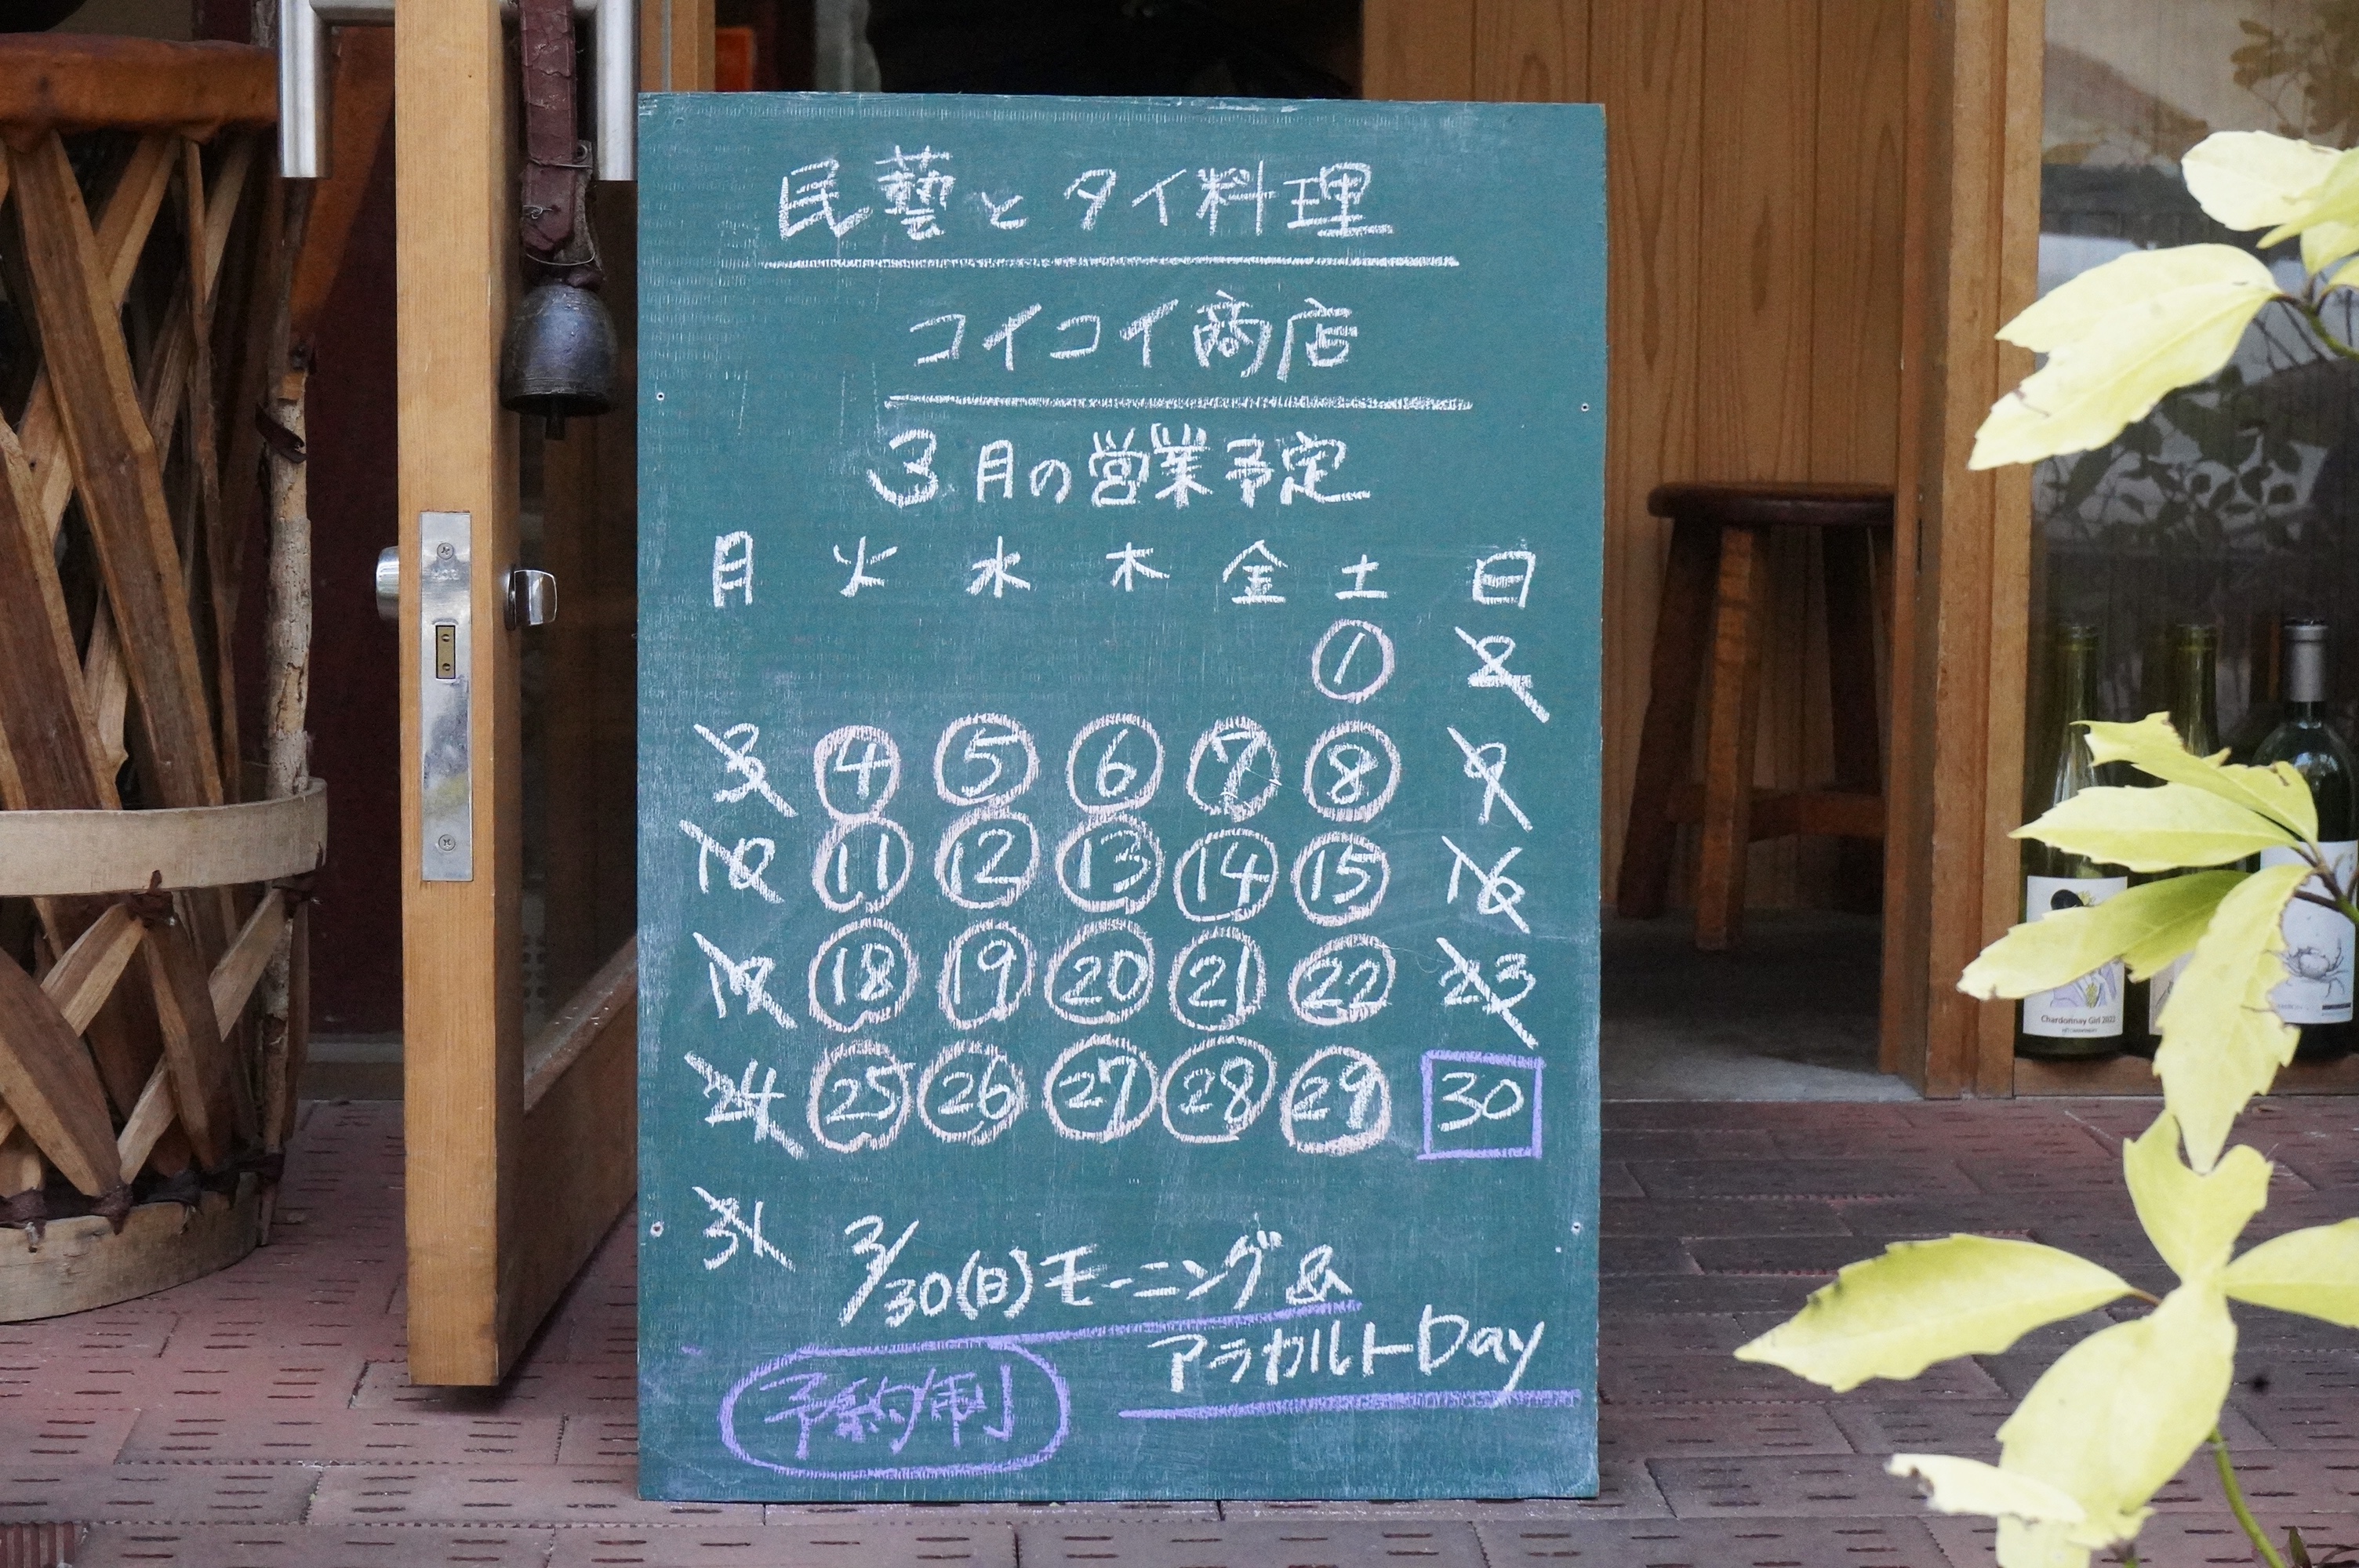 民藝とタイ料理
コイコイ商店
3月の営業予定
月 火 水 木 金 土 日
1 2
3 4 5 6 7 8 9
10 11 12 13 14 15 16
18 19 20 21 22 23
24 25 26 27 28 29 30
31
3/30(日)モーニング&
アラカルトDay
予約制
Chardonnay Girl 2023